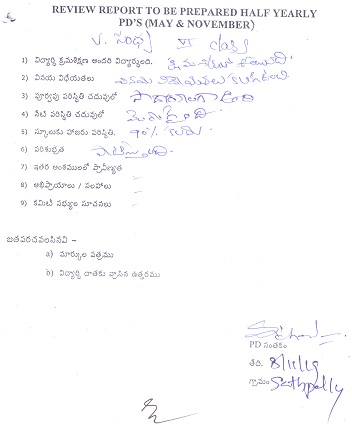 REVIEW REPORT TO BE PREPARED HALF YEARLY
PD'S (MAY & NOVEMBER)
V. సంధ్య VI class
1) విద్యార్థి క్రమశిక్షణ అందరి విద్యార్థులంది. క్రమశిక్షణ కలిగింది
2) వినయ విధేయతలు వినయ విధేయతలు కలిగినది
3) పూర్వపు పరిస్థితి చదువులో సాధారణంగా ఉంది
4) నేటి పరిస్థితి చదువులో మెరుగైంది.
5) స్కూలుకు హాజరు పరిస్థితి. 90% కలదు.
6) పరిశుభ్రత పాటిస్తుంది.
7) ఇతర అంశములలో ప్రావీణ్యత
8) అభిప్రాయాలు / సలహాలు
9) కమిటీ సభ్యుల సూచనలు
జతపరచవలసినవి –
a) మార్కుల పత్రము
b) విద్యార్థి దాతకు వ్రాసిన ఉత్తరము
PD సంతకం
తేది. 8/11/19
గ్రామం Sathpally